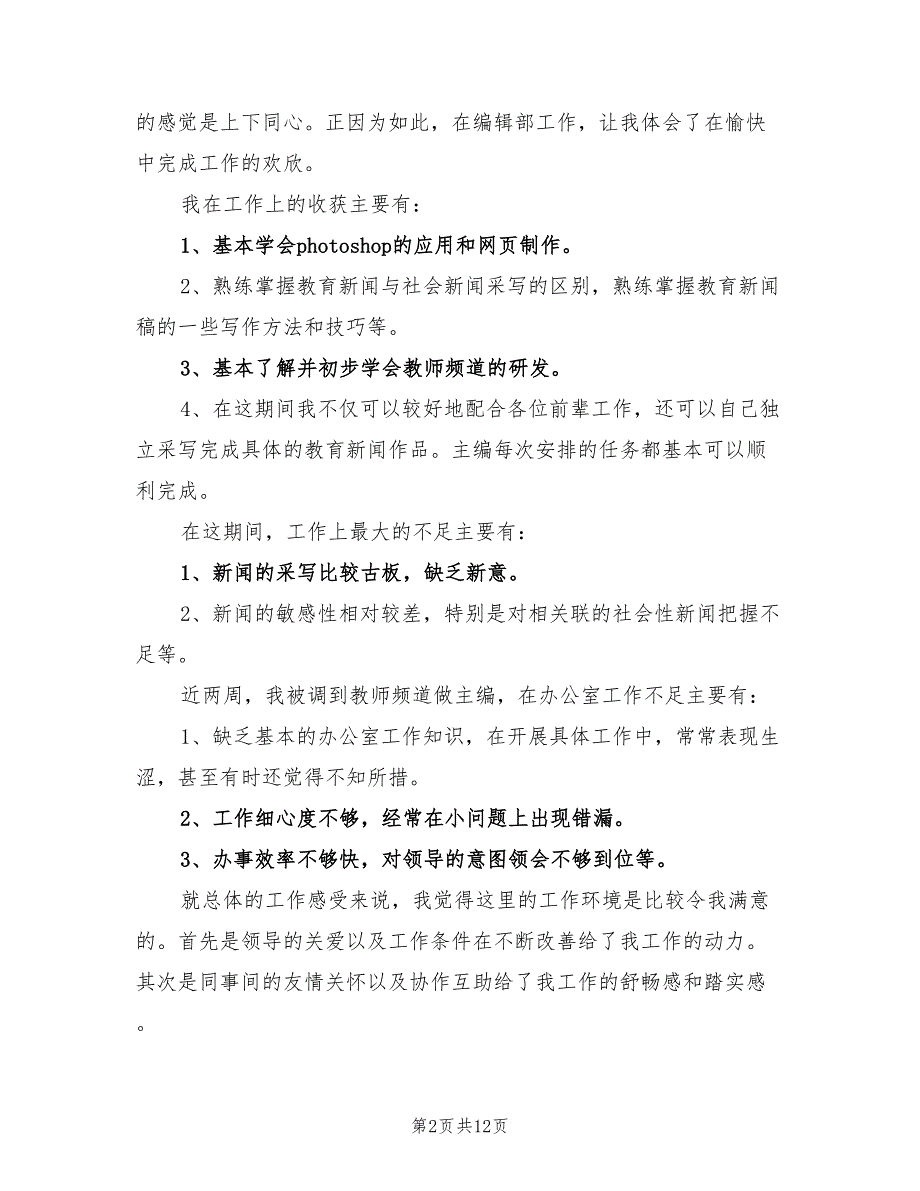 的感觉是上下同心。正因为如此，在编辑部工作，让我体会了在愉快
中完成工作的欢欣。
我在工作上的收获主要有：
1、基本学会photoshop的应用和网页制作。
2、熟练掌握教育新闻与社会新闻采写的区别，熟练掌握教育新闻
稿的一些写作方法和技巧等。
3、基本了解并初步学会教师频道的研发。
4、在这期间我不仅可以较好地配合各位前辈工作，还可以自己独
立采写完成具体的教育新闻作品。主编每次安排的任务都基本可以顺
利完成。
在这期间，工作上最大的不足主要有：
1、新闻的采写比较古板，缺乏新意。
2、新闻的敏感性相对较差，特别是对相关联的社会性新闻把握不
足等。
近两周，我被调到教师频道做主编，在办公室工作不足主要有：
1、缺乏基本的办公室工作知识，在开展具体工作中，常常表现生
涩，甚至有时还觉得不知所措。
2、工作细心度不够，经常在小问题上出现错漏。
3、办事效率不够快，对领导的意图领会不够到位等。
就总体的工作感受来说，我觉得这里的工作环境是比较令我满意
的。首先是领导的关爱以及工作条件在不断改善给了我工作的动力。
其次是同事间的友情关怀以及协作互助给了我工作的舒畅感和踏实感
。
第2页共12页